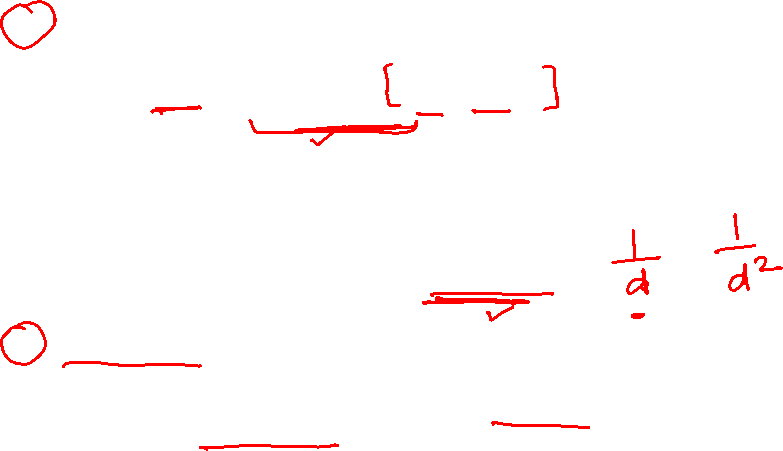 [ ]
1/d 1/d²